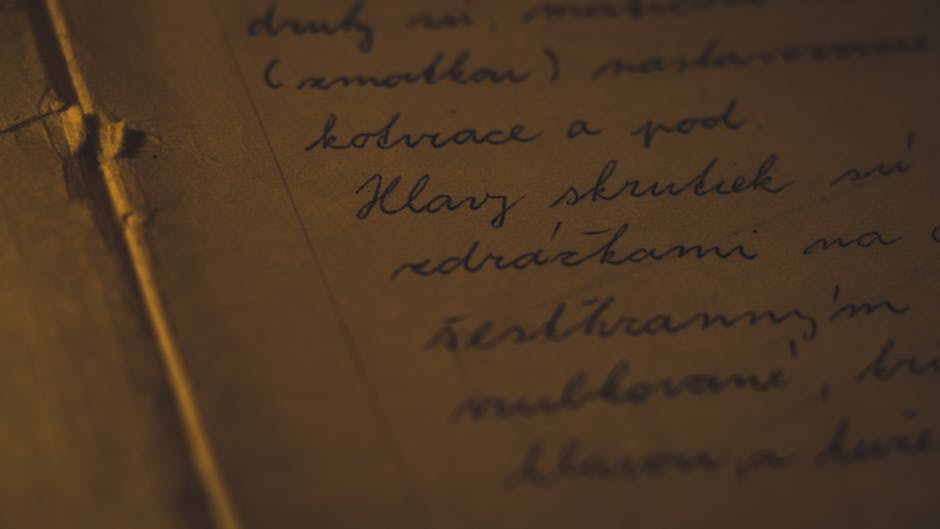 druhy sú. maticové
(zmatkou) nastavovacie
kotviace a pod.
Hlavy skrutiek sú
zdrážkami na
šesťhranným
vrubkované,
hlavou,